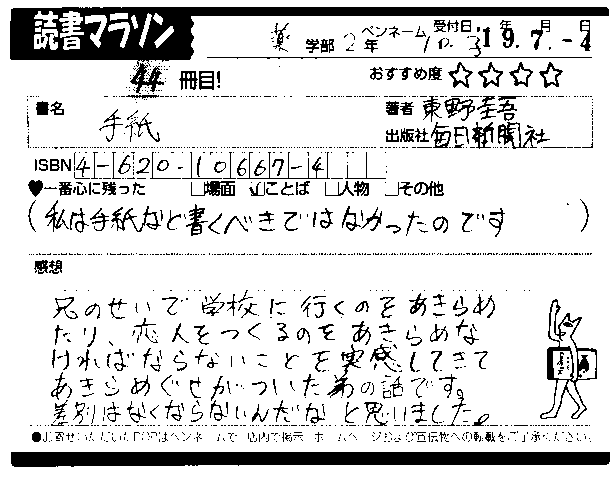 読書マラソン
薬 学部 2 年 ペンネーム 受付日 19.年7.月-4日
44 冊目!
おすすめ度 ☆☆☆☆
書名 手紙
著者 東野圭吾
出版社 毎日新聞社
ISBN 4-620-10667-4
♥一番心に残った □場面 ☑ことば □人物 □その他
(私は手紙など書くべきではなかったのです)
感想
兄のせいで学校に行くのをあきらめ
たり、恋人をつくるのをあきらめな
ければならないことを実感してきて
あきらめぐせがついた弟の話です。
差別はなくならないんだなと思いました。
●お寄せいただいたPOPはペンネームで 店内で掲示 ホームページおよび宣伝物への転載をご了承ください。